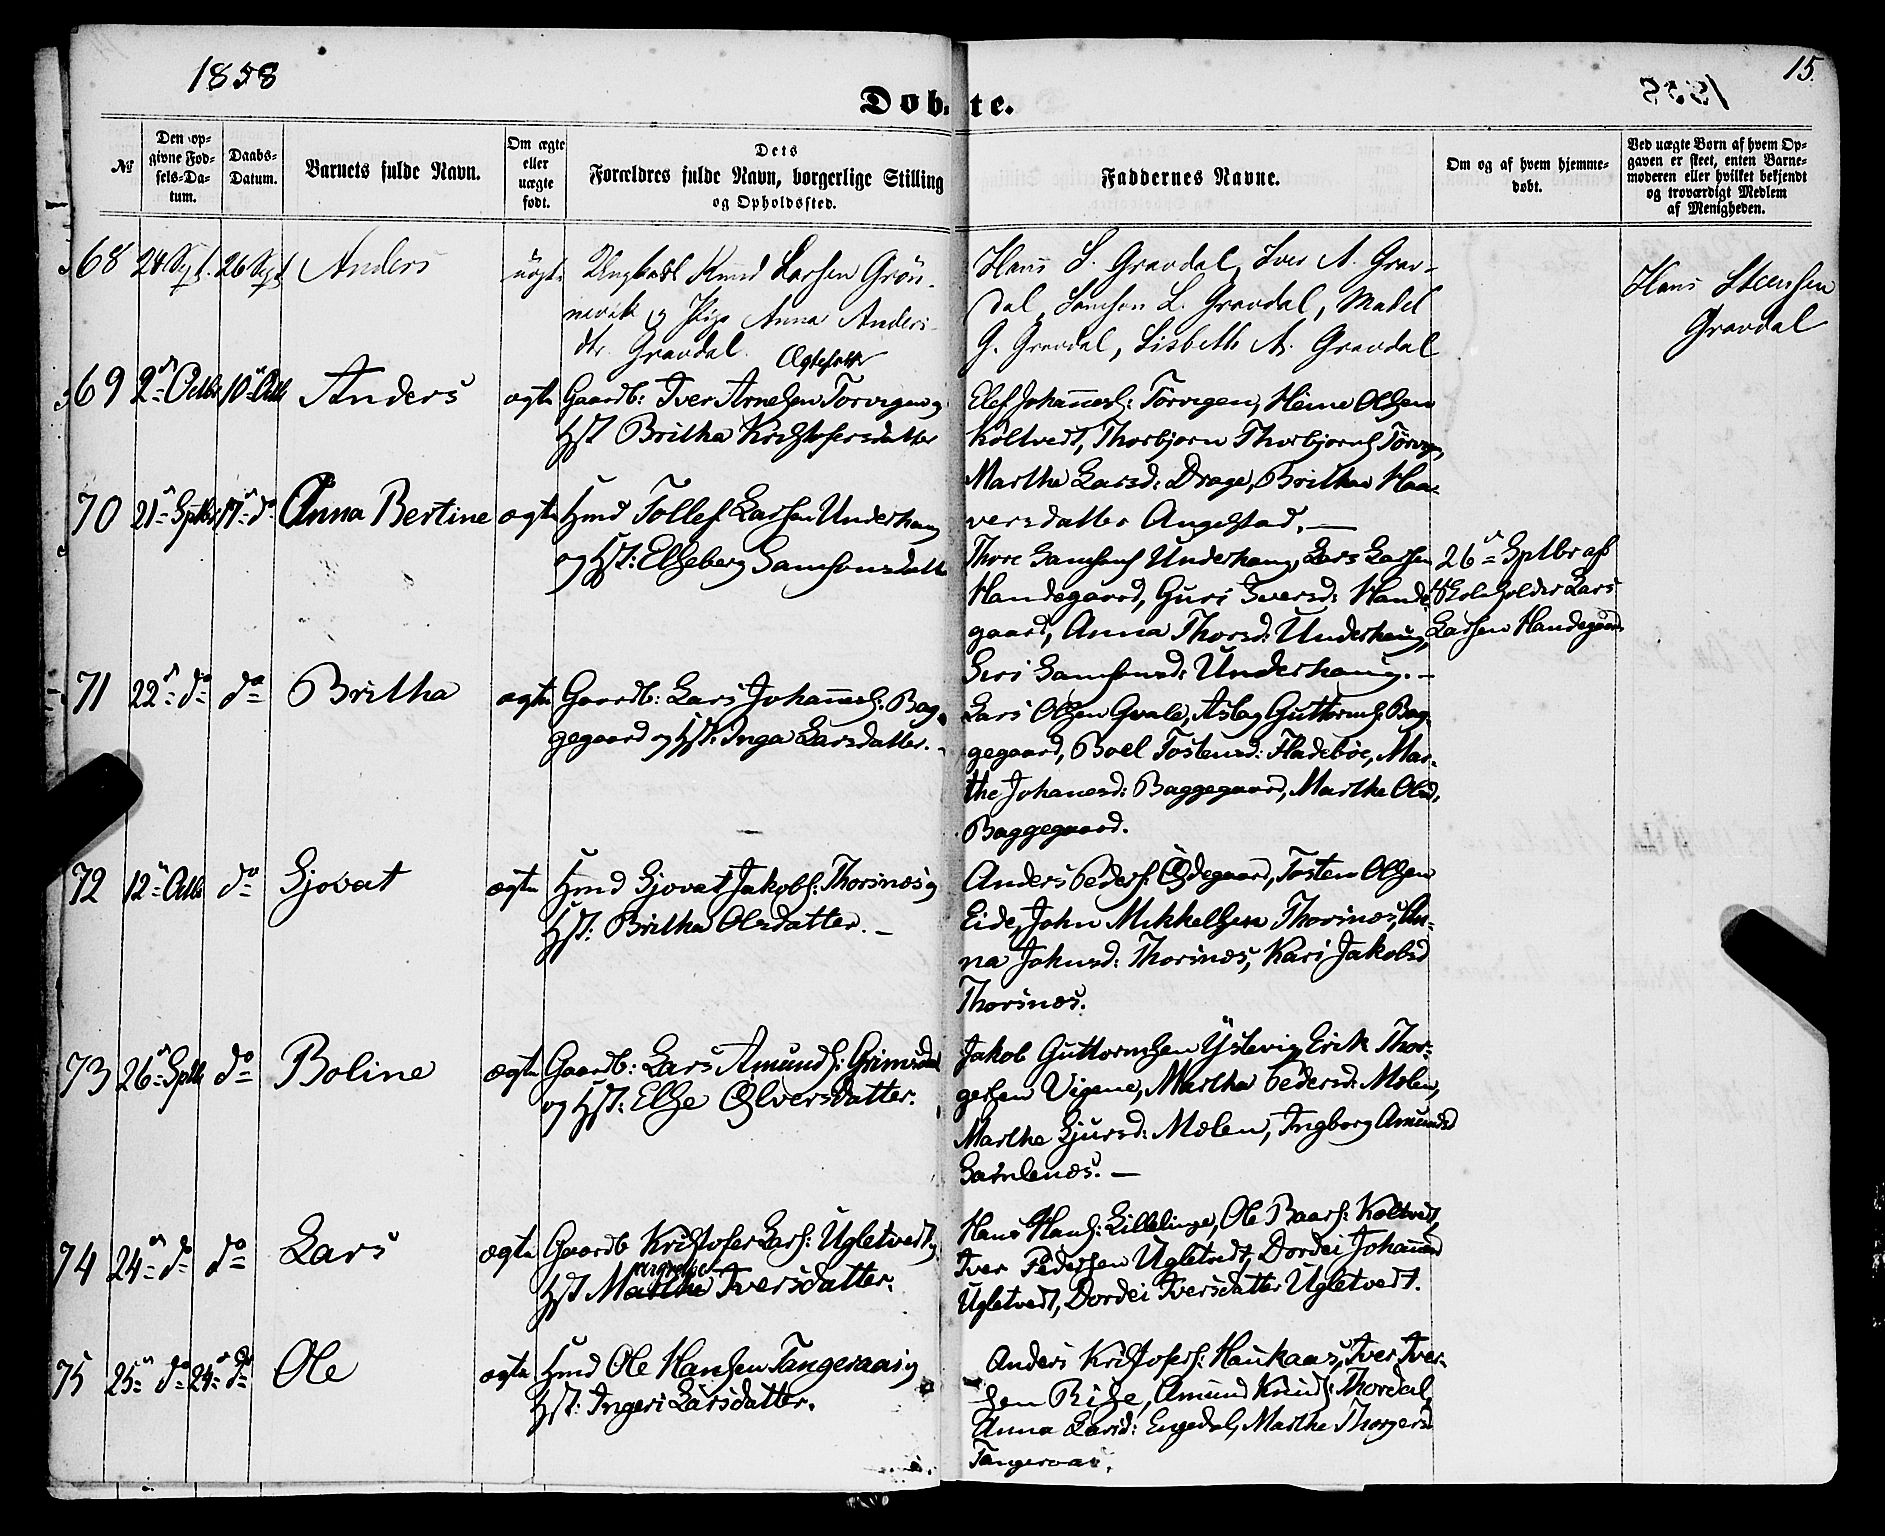 1858
15.
Døbte.
№
Den op-
givne Fød-
sels-Da-
tum.
Daabs-
Datum.
Barnets fulde Navn.
Om ægte
eller
uægte
født.
Dets
Forældres fulde Navn, borgerlige Stilling
og Opholdssted.
Faddernes Navne.
Om og af hvem hjemme-
døbt.
Ved uægte Børn af hvem Op-
gaven er skeet, enten Barne-
moderen eller hvilket bekjendt
og troværdigt Medlem
af Menigheden.
68 24 Sept. 26 Sept Anders uægte Ungkarl Knud Larsen Grøn-
nevik og Pige Anna Anders-
dtr. Gravdal.
Hans S. Gravdal, Iver A. Grav-
dal, Samson L. Gravdal, Madel
G. Gravdal, Lisbeth A. Gravdal
Hans Steensen
Gravdal
Ægtefolk
69 2n Octbr 10n Octb Anders ægte Gaardb: Iver Arnesen Torvigen og
Hst Britha Kristofersdatter
Elef Johannes: Torvigen, Heine Olsen
Koltvedt, Thorbjørn Thorbjørns Torvig,
Martha Larsd: Drage, Britha Haa-
versdatter Angelstad. —
70 21n Sptbr 17n do Anna Bertine ægte Hmd Tollef Larsen Underhaug
og Hst: Elseberg Samsonsdatt
Thore Samsons Underhaug, Lars Larsen
Handegaard, Guri Iversd: Hande-
gaard, Anna Thorsd: Underhaug,
Siri Samsonsd: Underhaug. —
26n Sptbr af
Skoleholder Lars
Larsen Handegaard
71 22n do do Britha ægte Gaardb: Lars Johannes: Bag-
gegaard og Hst: Inga Larsdatter. -
Lars Olsen Gvale, Aslag Guttorms: Bag-
gegaard, Boel Tostensd: Fladebøe, Mar-
the Johanesd: Baggegaard, Martha Olsd,
Baggegaard.
72 12n Octb do Sjovat ægte Hmd Sjovat Jakobs: Thorsnæs og
Hst: Britha Olsdatter. -
Anders Peders: Ødegaard, Tosten Olsen
Eide, John Mikkelsen Thorsnæs, An-
na Johnsd: Thorsnæs, Kari Jakobsd
Thorsnæs.
73 26n Sptb do Boline ægte Gaardb: Lars Amunds: Grimsdal
og Hst: Else Ølversdatter.
Jakob Guttormsen Ystevig, Erik Thor-
gersen Vigene, Martha Pedersd: Mølen,
Marthe Sjursd: Mølen, Ingborg Amundsd
Samlenæs. —
74 24n do do Lars ægte Gaardb Kristofer Lars: Ugletvedt og
Hst Martha Iversdatter.
Hans Hans: Lillelinge, Ole Baars: Koltvedt,
Iver Pedersen Ugletvedt, Dordei Johannesd
Ugletvedt, Dordei Iversdatter Ugletvedt.
75 25n do 24n do Ole ægte Hmd Ole Hansen Tangeraas og
Hst: Ingeri Larsdatter.
Anders Kristofers: Haukaas, Iver Iver-
sen Rise, Amund Knuds: Thordal,
Anna Larsd: Engedal, Marthe Thorgersd
Tangeraas.